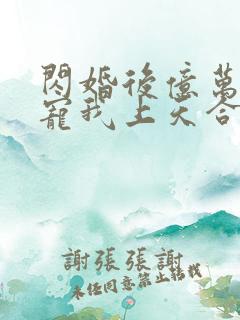 閃婚後億萬
寵我上天合
謝張張謝
未經同意禁止轉載